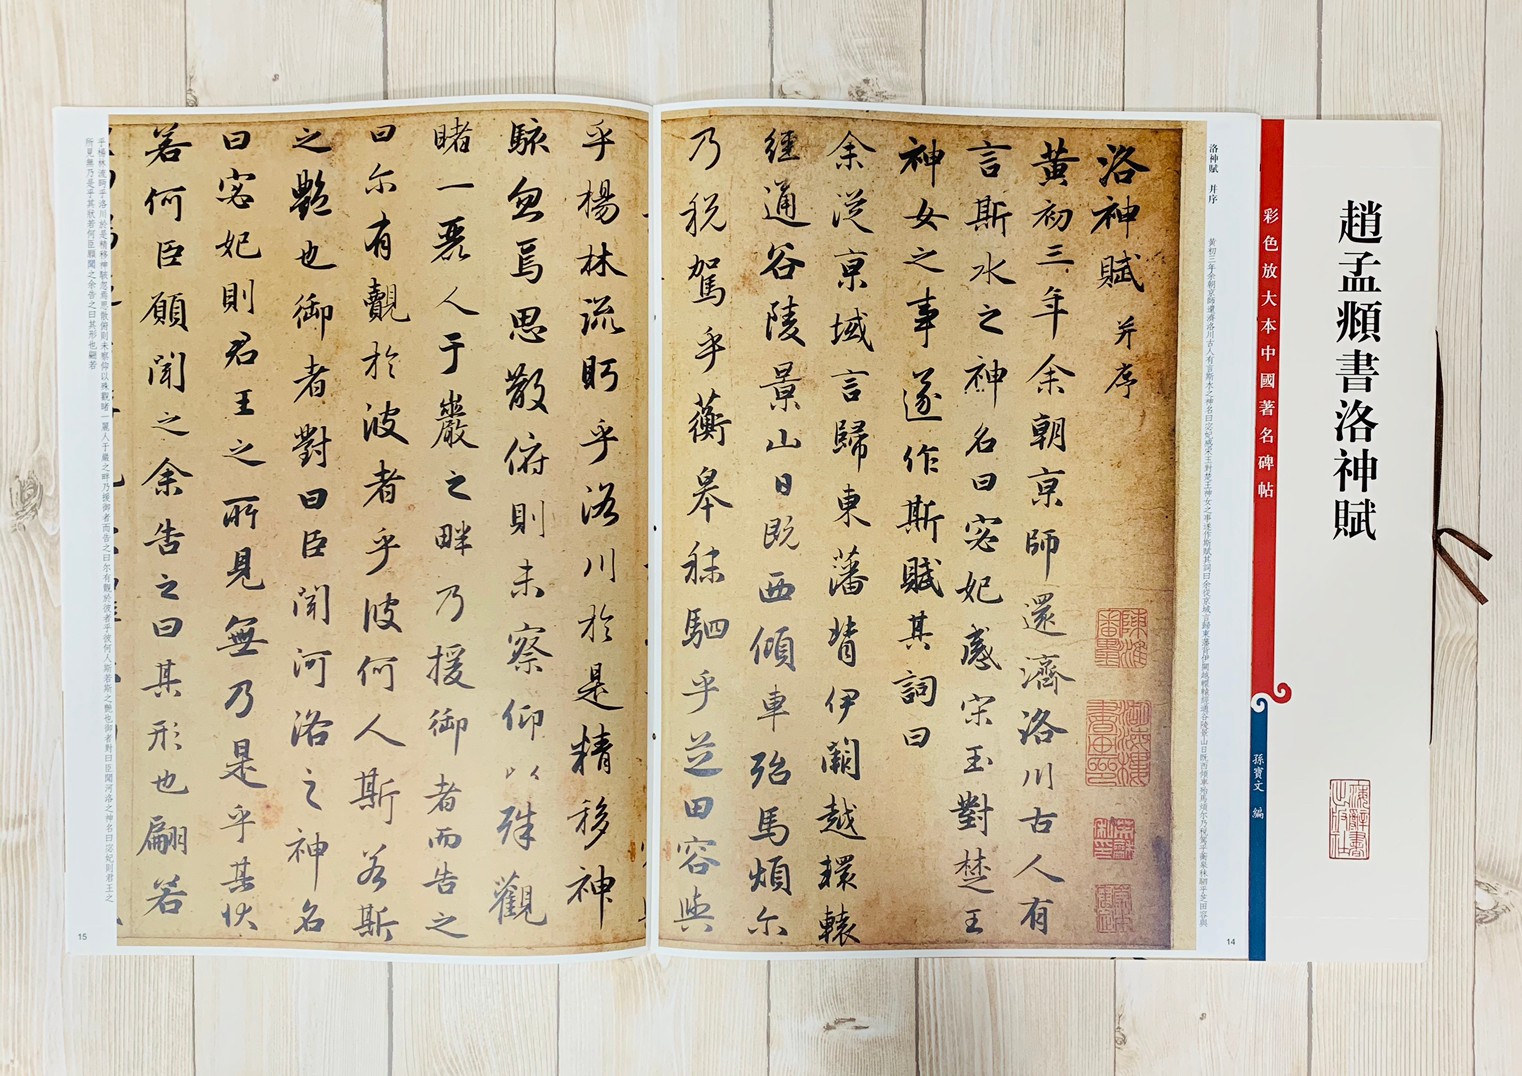 趙孟頫書洛神賦
彩色放大本中國著名碑帖
孫寶文 編
洛神賦 并序
黃初三年余朝京師還濟洛川古人有言斯水之神名曰宓妃感宋玉對楚王神女之事遂作斯賦其詞曰余從京域言歸東藩背伊闕越轘轅經通谷陵景山日既西傾車殆馬煩尔乃稅駕乎蘅皋秣駟乎芝田容與
14
洛神賦 并序
黃初三年余朝京師還濟洛川古人有
言斯水之神名曰宓妃感宋玉對楚王
神女之事遂作斯賦其詞曰
余從京域言歸東藩背伊闕越轘轅
經通谷陵景山日既西傾車殆馬煩尔
乃稅駕乎蘅皋秣駟乎芝田容與
乎楊林流眄乎洛川於是精移神
駭忽焉思散俯則未察仰以殊觀
睹一麗人于巖之畔乃援御者而告之
曰尔有覿於彼者乎彼何人斯若斯
之艷也御者對曰臣聞河洛之神名
曰宓妃則君王之所見無乃是乎其狀
若何臣願聞之余告之曰其形也翩若
乎楊林流眄乎洛川於是精移神駭忽焉思散俯則未察仰以殊觀睹一麗人于巖之畔乃援御者而告之曰尔有覿於彼者乎彼何人斯若斯之艷也御者對曰臣聞河洛之神名曰宓妃則君王之
所見無乃是乎其狀若何臣願聞之余告之曰其形也翩若
15